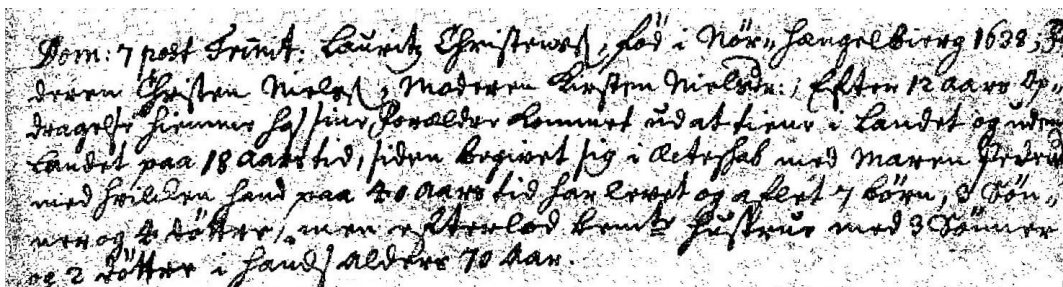 Dom: 7 post Trinit: Lauritz Christens, fød i Nør= Hangelbierg 1638, Fa
deren Christen Niels, Moderen Kirsten Nielsdr:, Efter 12 aars Op=
dragelse hiemme hos sine Forældre kommet ud at tiene i Landet og uden
Landet paa 18 Aars tid, siden begivet sig i Ægteskab med Maren Peders
med hvilken hand paa 40 Aars tid har levet og aflet 7 børn, 3 Søn,
ner og 4 døttre, men efterlod bemte Hustrue med 3 Sønner
og 2 døttre i hands alders 70 Aar.